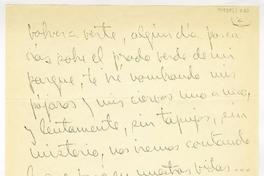 volver a verte, algún día pasea
rás sobre el prado verde de mi
parque, te iré nombrando mis
pájaros y mis ciervos uno a uno,
y lentamente, sin tapujos, sin
misterio, nos iremos contando
nuestras vidas...